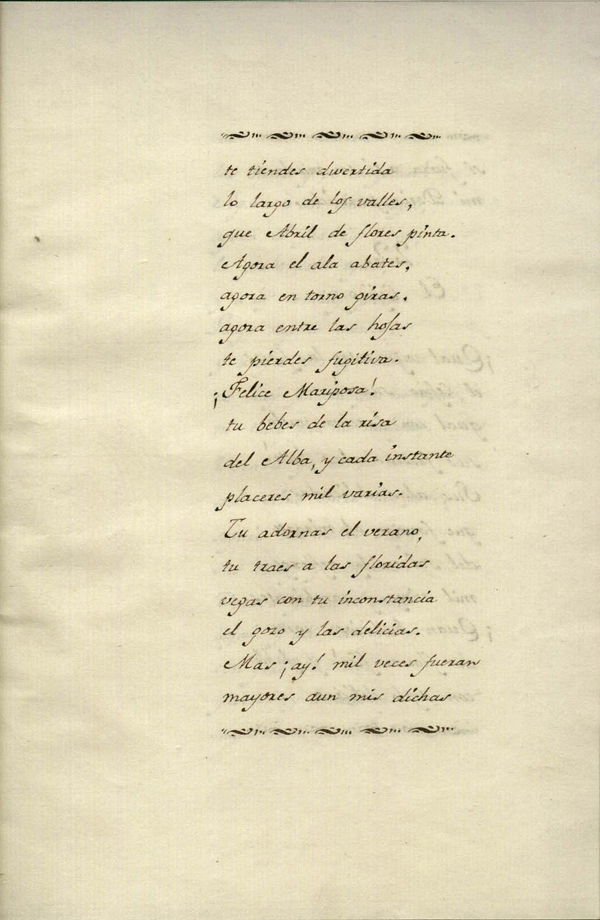 te tiendes divertida
lo largo de los valles,
que Abril de flores pinta.
Agora el ala abates,
agora en torno giras,
agora entre las hojas
te pierdes fugitiva.
¡Felice Mariposa!
tu bebes de la risa
del Alba, y cada instante
placeres mil varias.
Tu adornas el verano,
tu traes a las floridas
vegas con tu inconstancia
el gozo y las delicias.
Mas ¡ay! mil veces fueran
mayores aun mis dichas